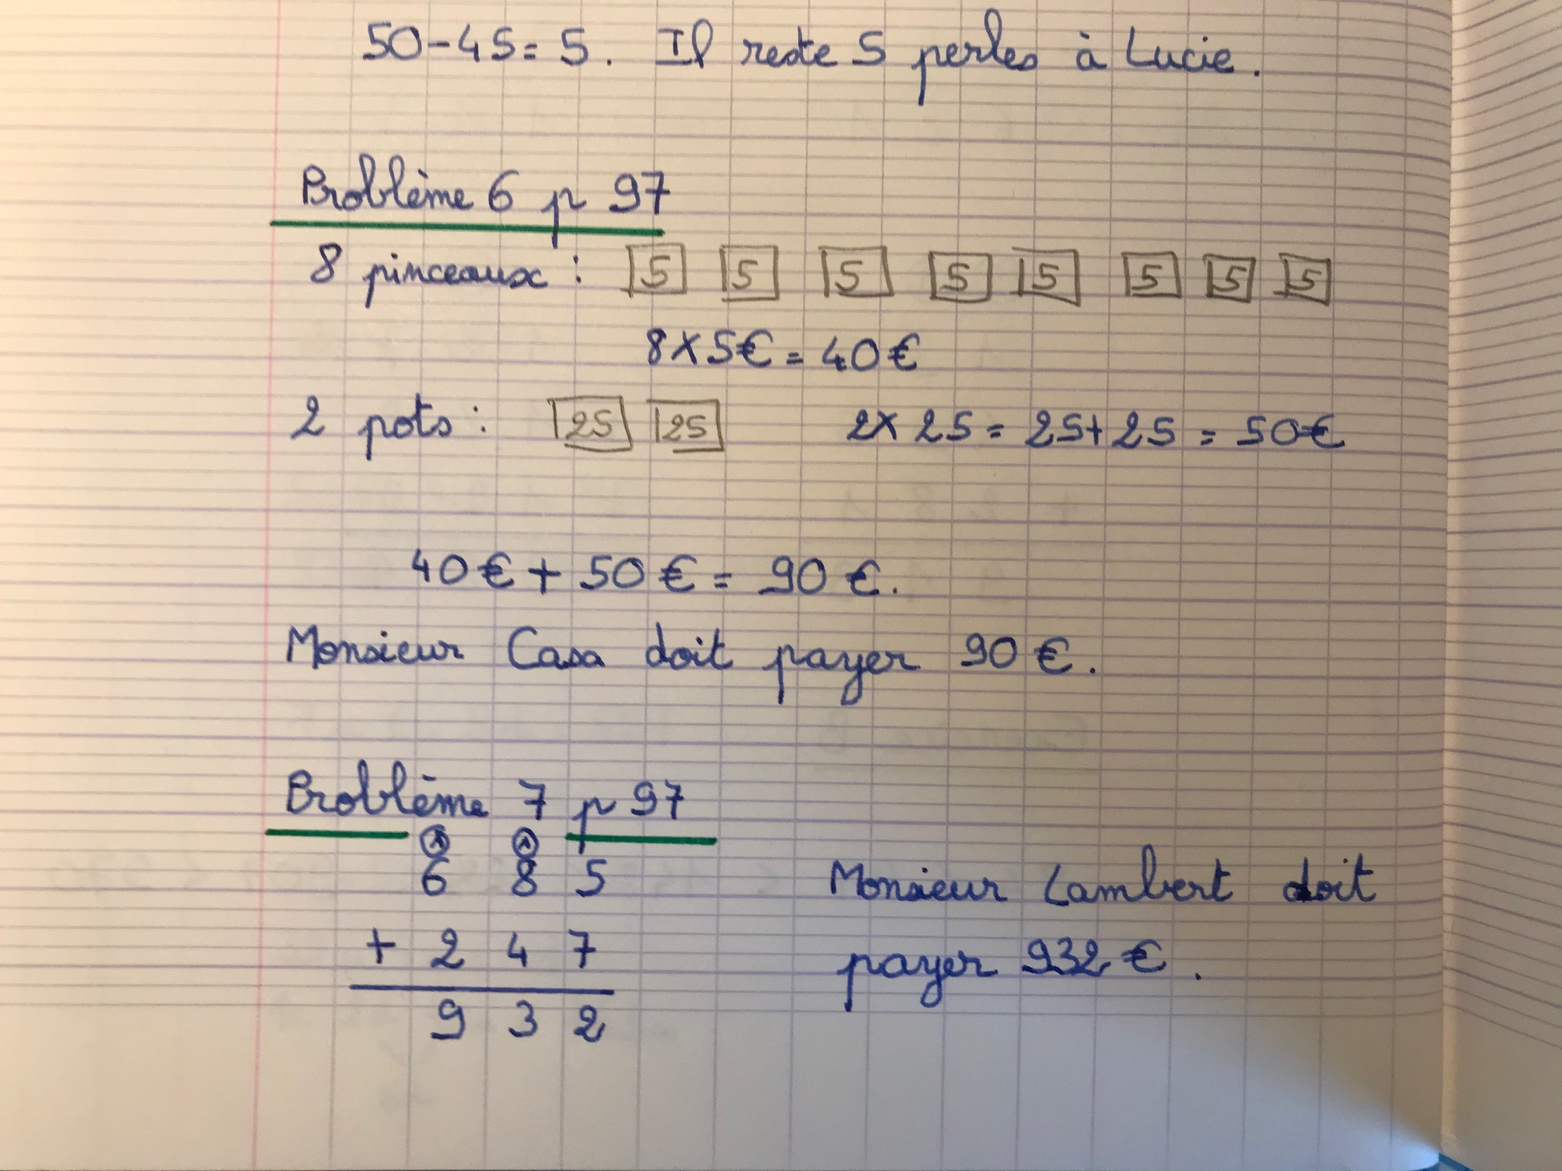 50-45=5. Il reste 5 perles à Lucie.
Problème 6 p 97
8 pinceaux : 5 5 5 5 5 5 5 5
8×5€ = 40€
2 pots : 25 25 2×25 = 25+25 = 50€
40€ + 50€ = 90€.
Monsieur Casa doit payer 90€.
Problème 7 p 97
1 1
6 8 5
+ 2 4 7
9 3 2
Monsieur Lambert doit
payer 932€.